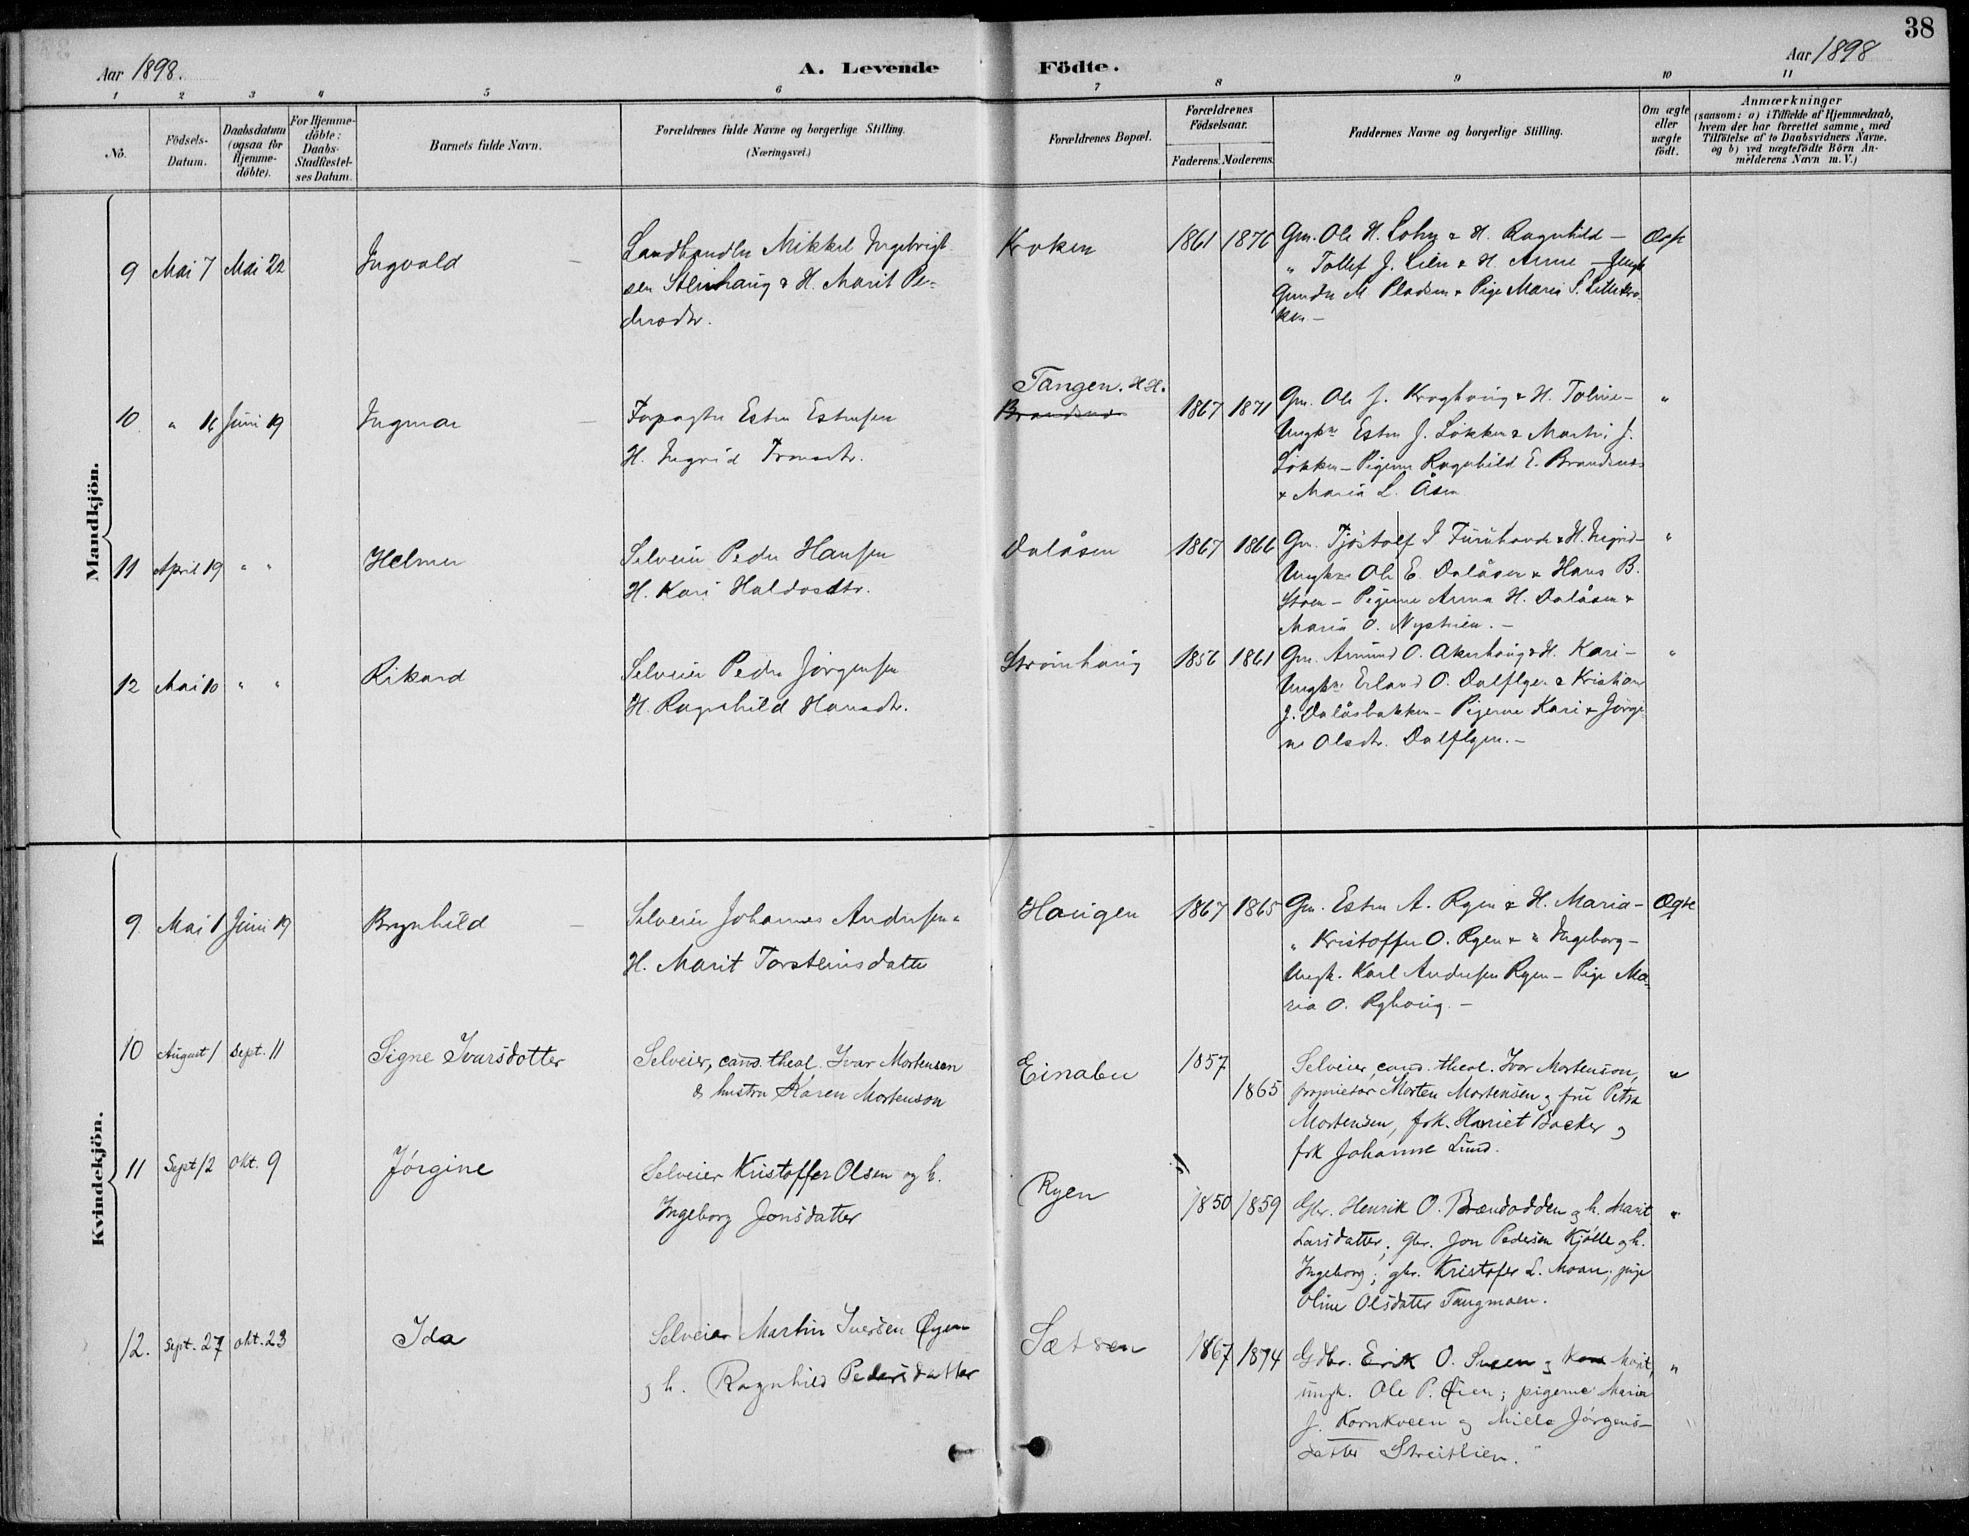 38
Aar 1898.
A. Levende Födte.
Aar 1898
1 2 3 4 5 6 7 8 9 10 11
No.
Födsels-
Datum.
Daabsdatum
(ogsaa for
Hjemme-
döbte).
For Hjemme-
döbte:
Daabs-
Stadfæstel-
ses Datum.
Barnets fulde Navn.
Forældrenes fulde Navne og borgerlige Stilling.
(Næringsvei.)
Forældrenes Bopæl.
Forældrenes
Födselsaar.
Faderens. Moderens.
Faddernes Navne og borgerlige Stilling.
Om ægte
eller
uægte
födt.
Anmærkninger
(saasom: a) i Tilfælde af Hjemmedaab,
hvem der har forrettet samme, med
Tilföielse af to Daabsvidners Navne.
og b) ved uægtefödte Börn An-
melderens Navn m. V.)
Mandkjön.
9 Mai 7 Mai 22
Ingvald
Landhandler Mikkel Ingebrigt-
sen Steinhaug & H. Marit Pe-
dersdtr.
Kroken
1861 1876
Gm. Ole H. Lohn & H. Ragnhild –
„ Tollef J. Lien & H. Anne –
M Pladsen & Pige Maria S. Lillekro-
ken –
Ægte
10. „ 16 Juni 19
Ingmar
Forpagter Esten Estensen
H. Ingrid
Tangen. H.H.
Brandsnes
1867 1871
Gm. Ole J. Kroghaug & H. Toline –
Ungkm Esten J. Løkken & Martin J.
Løkken – Pigerne Ragnhild E. Brandsnes
& Maria L. Åsen
„
11 April 19 „ „
Helmer
Selveier Peder Hansen
H. Kari Haldosdtr.
Dalåsen
1867 1866
Gm. Tjøstolf I Furuhovde & H. Ingrid –
Ungkm Ole E. Dalåsen & Hans B.
Støen – Pigerne Anna H. Dalåsen &
Maria O. Nystuen. –
„
12 Mai 10 „ „
Rikard
Selveier Peder Jørgensen
H. Ragnhild Hansdtr.
Strømhaug
1856 1861
Gm. Amund O. Akerhaug & H. Kari –
Ungkm Erland O. Dalflyen & Kristian
J. Dalåsbakken – Pigerne Kari & Jørgi-
ne Olsdtr. Dalflyen. –
„
Kvindekjön.
9. Mai 1 Juni 19
Brynhild
Selveier Johannes Andersen &
H. Marit Torsteinsdatter
Haugen
1867 1865
Gm. Esten A. Ryen & H. Maria –
„ Kristoffer O. Ryen & „ Ingeborg –
Ungk. Karl Andersen Ryen – Pige Ma-
ria O. Ryhaug. –
Ægte
10 August 1 Sept. 11
Signe Ivarsdotter
Selveier, cand. theol. Ivar Mortenson
& hustru Karen Mortenson
Einabu
1857
1865
Selveier, cand. theol. Ivar Mortenson,
proprietær Morten Mortensen og fru Petra
Mortensen, frk. Harriet Backer og
frk Johanne Lund.
„
11 Sept 12 Okt. 9
Jørgine
Selveier Kristoffer Olsen og h.
Ingeborg Jonsdatter
Ryen
1850 1859
Gbr. Henrik O. Brændodden og h. Marit
Larsdatter; gbr. Jon Pedersen Kjølle og h.
Ingeborg; gbr. Kristofer L. Moan; pige
Oline Olsdatter Tangmoen.
„
12. Sept. 27 Okt. 23
Ida
Selveier Martin Iversen Øyen
og h. Ragnhild Pedersdatter
Sætren
1867 1874
Gdbr. Erik O. Sveen og Marit,
ungk. Ole P. Øien; pigerne Maria
J. Kornkveen og Miela Jørgens-
datter Streitlien.
„